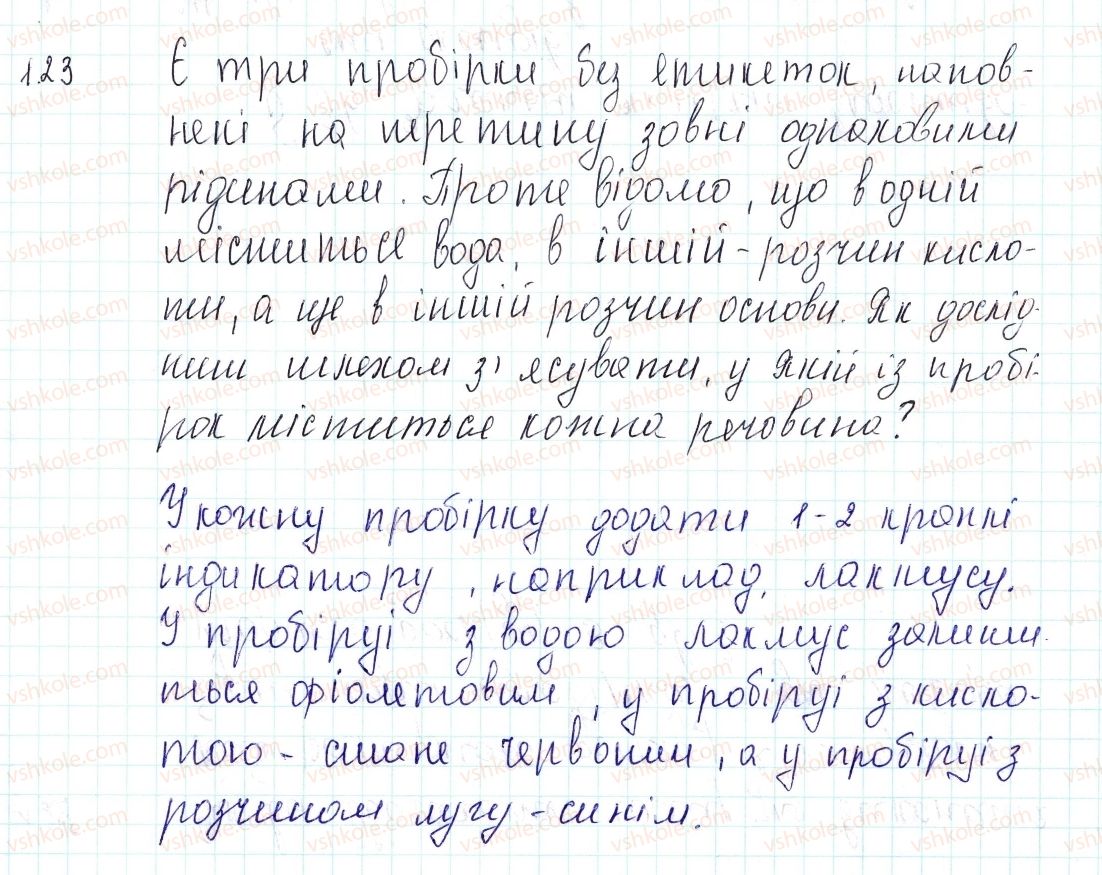 123 Є три пробірки без етикеток, напов-
нені на третину зовні однаковими
рідинами. Проте відомо, що в одній
міститься вода, в іншій - розчин кисло-
ти, а ще в іншій розчин основи. Як дослід-
ним шляхом з'ясувати, у якій із пробі-
рок міститься кожна речовина?
У кожну пробірку додати 1-2 краплі
індикатору, наприклад, лакмусу.
У пробірці з водою лакмус залиши-
ться фіолетовим, у пробірці з кисло-
тою - стане червоним, а у пробірці з
розчином лугу - синім.